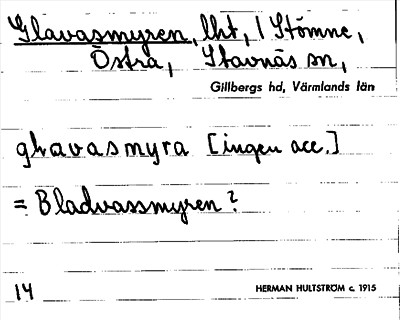 Glavasmyren, lht, / Stömne,
Östra, Stavnäs sn,
Gillbergs hd, Värmlands län
glavasmyra [ingen acc.]
= Bladvassmyren?
14 HERMAN HULTSTRÖM c. 1915